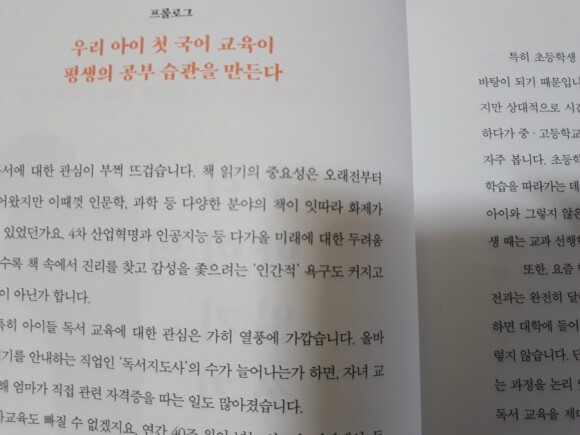 프롤로그
우리 아이 첫 국어 교육이
평생의 공부 습관을 만든다
서에 대한 관심이 부쩍 뜨겁습니다. 책 읽기의 중요성은 오래전부터
어왔지만 이때껏 인문학, 과학 등 다양한 분야의 책이 잇따라 화제가
있었던가요. 4차 산업혁명과 인공지능 등 다가올 미래에 대한 두려움
수록 책 속에서 진리를 찾고 감성을 좇으려는 '인간적' 욕구도 커지고
이 아닌가 합니다.
특히 아이들 독서 교육에 대한 관심은 가히 열풍에 가깝습니다. 올바
기를 안내하는 직업인 '독서지도사'의 수가 늘어나는가 하면, 자녀 교
해 엄마가 직접 관련 자격증을 따는 일도 많아졌습니다.
교육도 빠질 수 없겠지요. 연간 40조 원이
특히 초등학생
바탕이 되기 때문입니
지만 상대적으로 시간
하다가 중·고등학교
자주 봅니다. 초등학
학습을 따라가는 데
아이와 그렇지 않은
생 때는 교과 선행학
또한, 요즘
전과는 완전히 달
하면 대학에 들어
렇지 않습니다. 단
는 과정을 논리
독서 교육을 제대